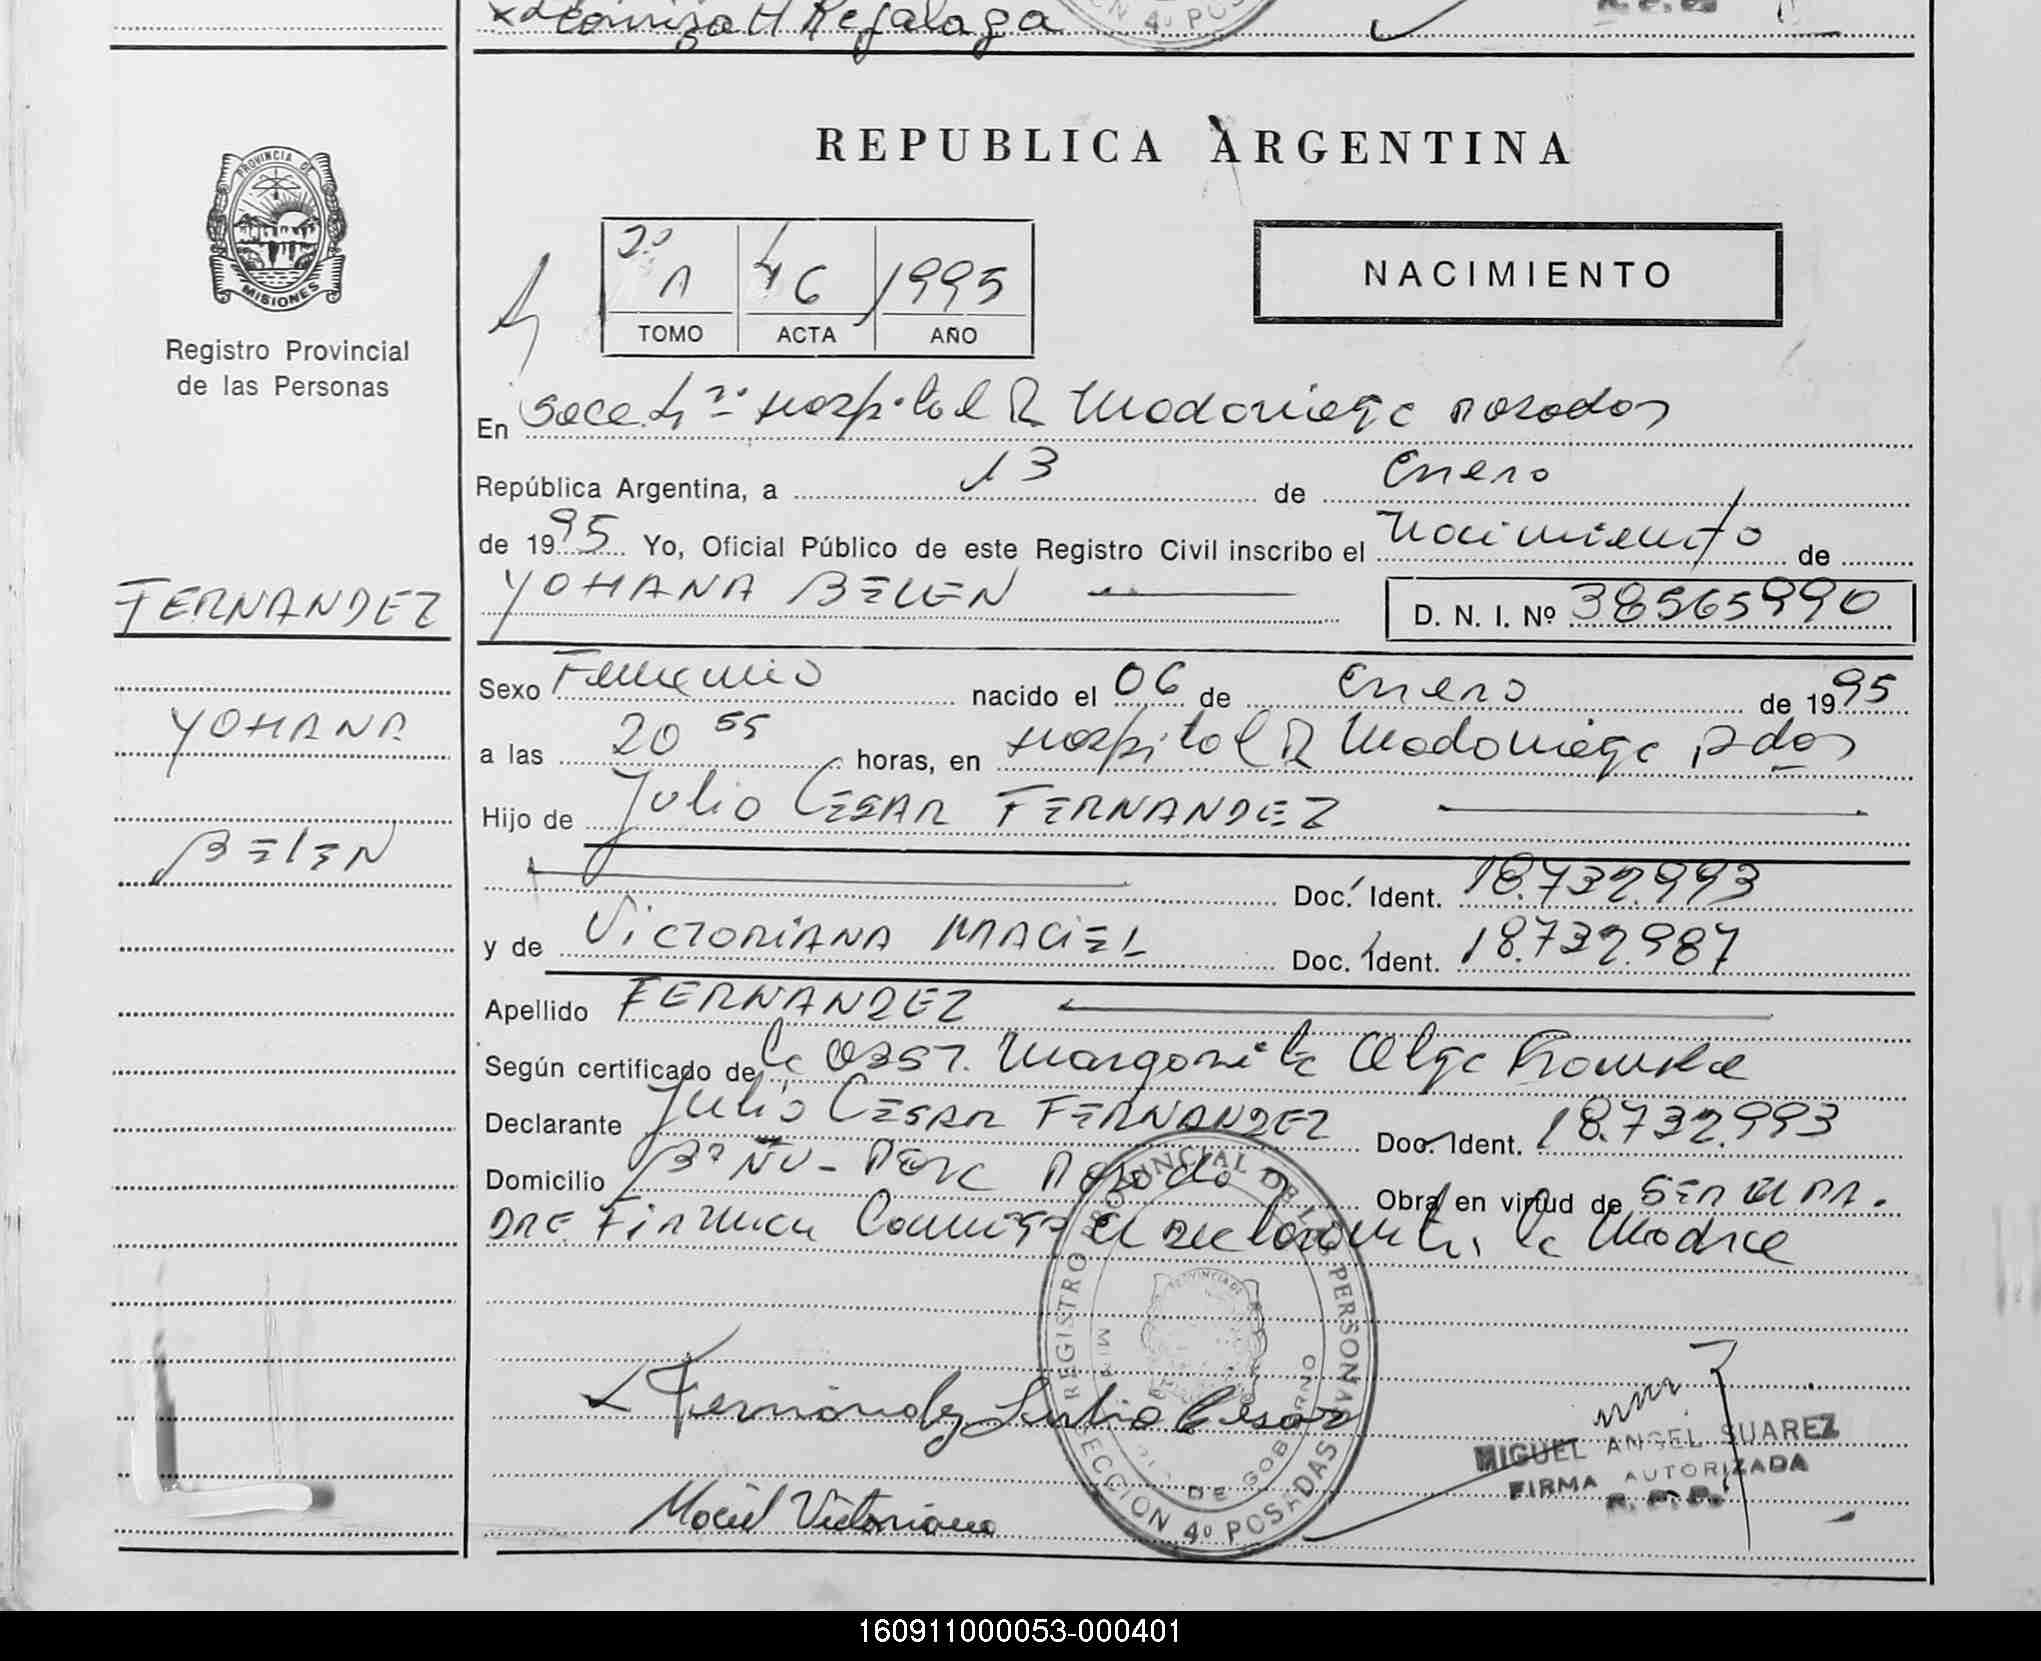 H Regalaga
REPUBLICA ARGENTINA
PROVINCIA DE
MISIONES
Registro Provincial
de las Personas
2º A 46 1995
TOMO ACTA AÑO
NACIMIENTO
En Secc. 4ª Hospital R Madariaga Posadas
República Argentina, a 13 de Enero
de 1995 Yo, Oficial Público de este Registro Civil inscribo el Nacimiento de
YOHANA BELEN D. N. I. Nº 38565990
FERNANDEZ
YOHANA
BELEN
Sexo Femenino nacido el 06 de Enero de 1995
a las 20 55 horas, en Hospital R Madariaga Pdas
Hijo de Julio CESAR FERNANDEZ
Doc. Ident. 18.732.993
y de VICTORIANA MACIEL Doc. Ident. 18.732.987
Apellido FERNANDEZ
Según certificado de la OBST. Margarita Olga
Declarante Julio CESAR FERNANDEZ Doc. Ident. 18.732.993
Domicilio Bº ÑU-PORA Posadas Obra en virtud de SER EL PA.
DRE. Firman Conmigo el declarante y la Madre
Fernández Julio Cesar
Maciel Victoriana
REGISTRO PROVINCIAL DE LAS PERSONAS
SECCION 4º POSADAS
DE GOBIERNO
MIGUEL ANGEL SUAREZ
FIRMA AUTORIZADA
R. P. P.
160911000053-000401